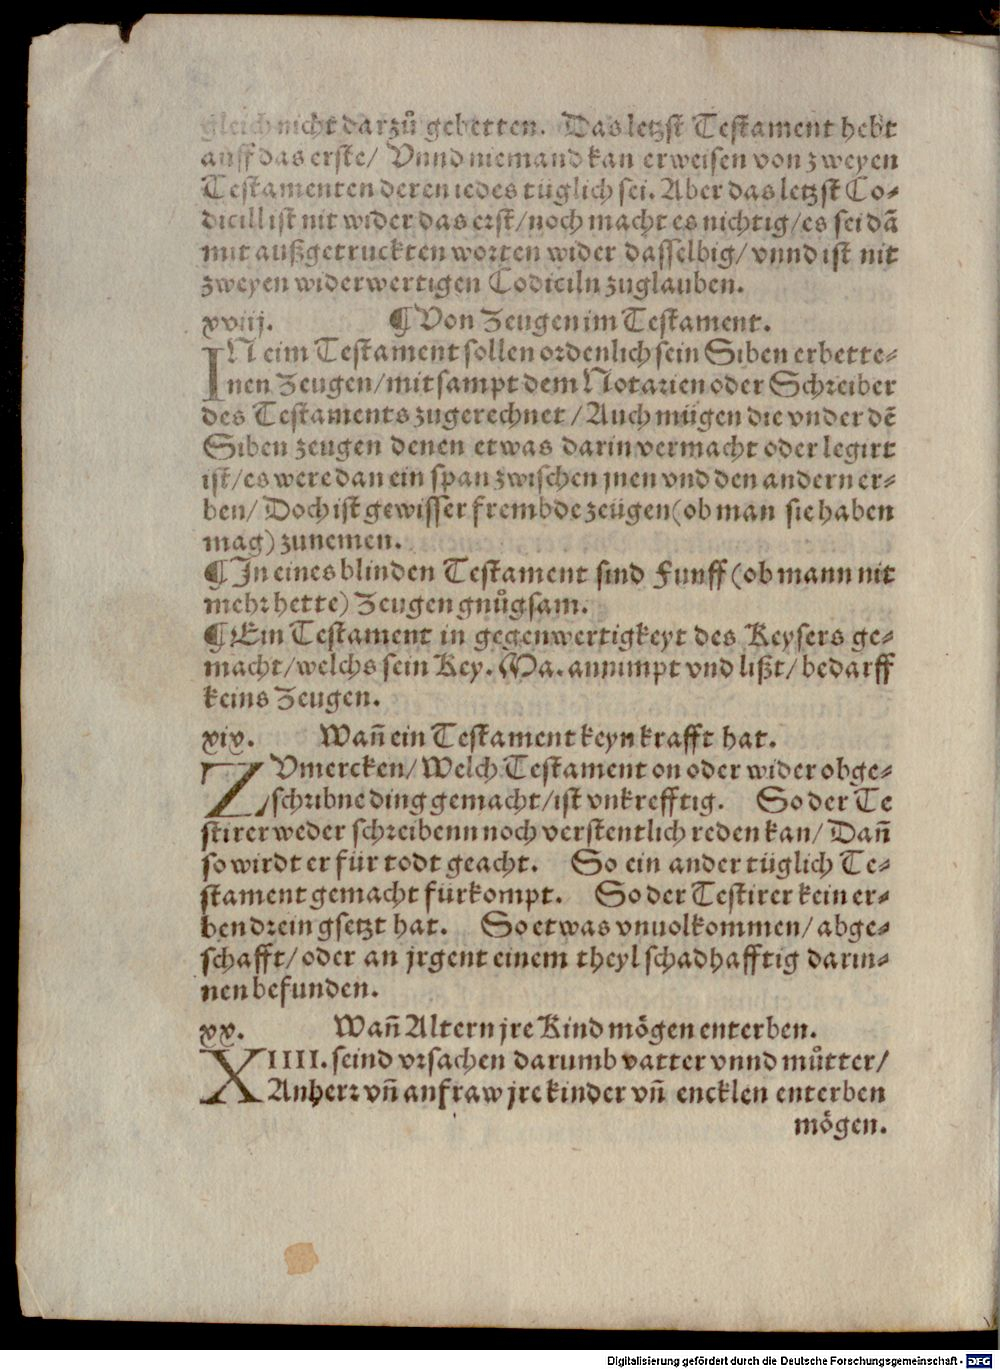 gleich nicht darzů gebetten. Das letzst Testament hebt
auff das erste/ Vnnd niemand kan erweisen von zweyen
Testamenten deren iedes tüglich sei. Aber das letzst Co⸗
dicill ist nit wider das erst/noch macht es nichtig/es sei dã
mit außgetruckten worten wider dasselbig/ vnnd ist nit
zweyen widerwertigen Codiciln zuglauben.
xviij. ¶ Von Zeugen im Testament.
IN eim Testament sollen ordenlich sein Siben erbette⸗
nen Zeugen/mitsampt dem Notarien oder Schreiber
des Testaments zugerechnet/Auch mügen die vnder dẽ
Siben zeugen denen etwas darin vermacht oder legirt
ist/es were dan ein span zwischen jnen vnd den andern er⸗
ben/ Doch ist gewisser frembde zeügen (ob man sie haben
mag) zunemen.
¶ In eines blinden Testament sind Funff (ob mann nit
mehr hette) Zeugen gnůgsam.
¶ Ein Testament in gegenwertigkeyt des Keysers ge⸗
macht/welchs sein Key. Ma. annimpt vnd lißt/bedarff
keins Zeugen.
xix. Wañ ein Testament keyn krafft hat.
ZVmercken/Welch Testament on oder wider obge⸗
schribne ding gemacht/ist vnkrefftig. So der Te
stirer weder schreibenn noch verstentlich reden kan/ Dañ
so wirdt er für todt geacht. So ein ander tüglich Te⸗
stament gemacht fürkompt. So der Testirer kein er⸗
ben drein gsetzt hat. So etwas vnuolkommen/abge⸗
schafft/oder an jrgent einem theyl schadhafftig darin⸗
nen befunden.
xx. Wañ Altern jre Kind mögen enterben.
XIIII. seind vrsachen darumb vatter vnnd můtter/
Anherr vñ anfraw jre kinder vñ encklen enterben
mögen.
Digitalisierung gefördert durch die Deutsche Forschungsgemeinschaft - DFG